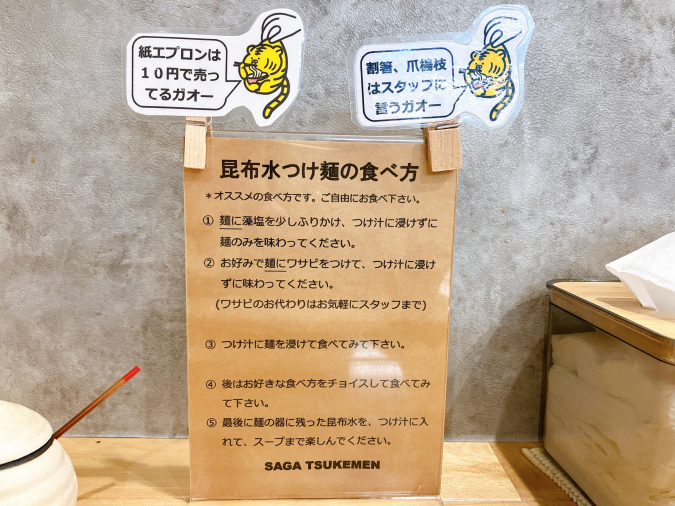 紙エプロンは
10円で売っ
てるガオー
割箸、爪楊枝
はスタッフに
言うガオー
昆布水つけ麺の食べ方
＊オススメの食べ方です。ご自由にお食べ下さい。
① 麺に藻塩を少しふりかけ、つけ汁に浸けずに
麺のみを味わってください。
② お好みで麺にワサビをつけて、つけ汁に浸け
ずに味わってください。
(ワサビのお代わりはお気軽にスタッフまで)
③ つけ汁に麺を浸けて食べてみて下さい。
④ 後はお好きな食べ方をチョイスして食べてみ
て下さい。
⑤ 最後に麺の器に残った昆布水を、つけ汁に入
れて、スープまで楽しんでください。
SAGA TSUKEMEN